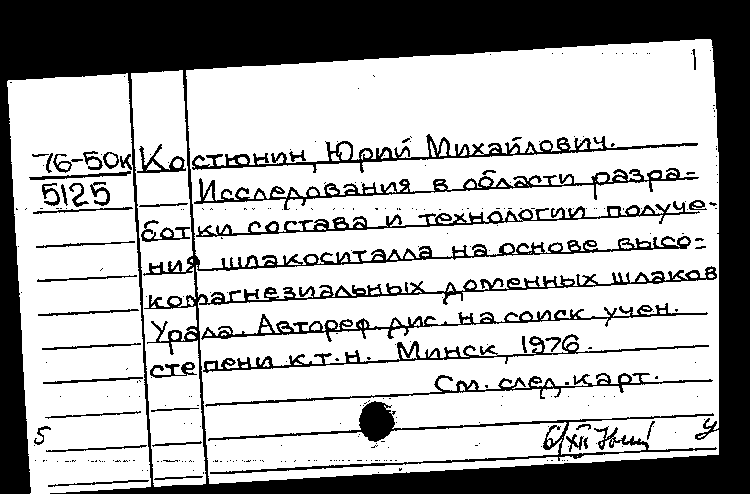 1
76-50к Костюнин, Юрий Михайлович.
5125 Исследования в области разра=
ботки состава и технологии получе-
ния шлакоситалла на основе высо=
комагнезиальных доменных шлаков
Урала. Автореф. дис. на соиск. учен.
степени к.т.н. Минск, 1976.
См. след. карт.
5 6/XII у